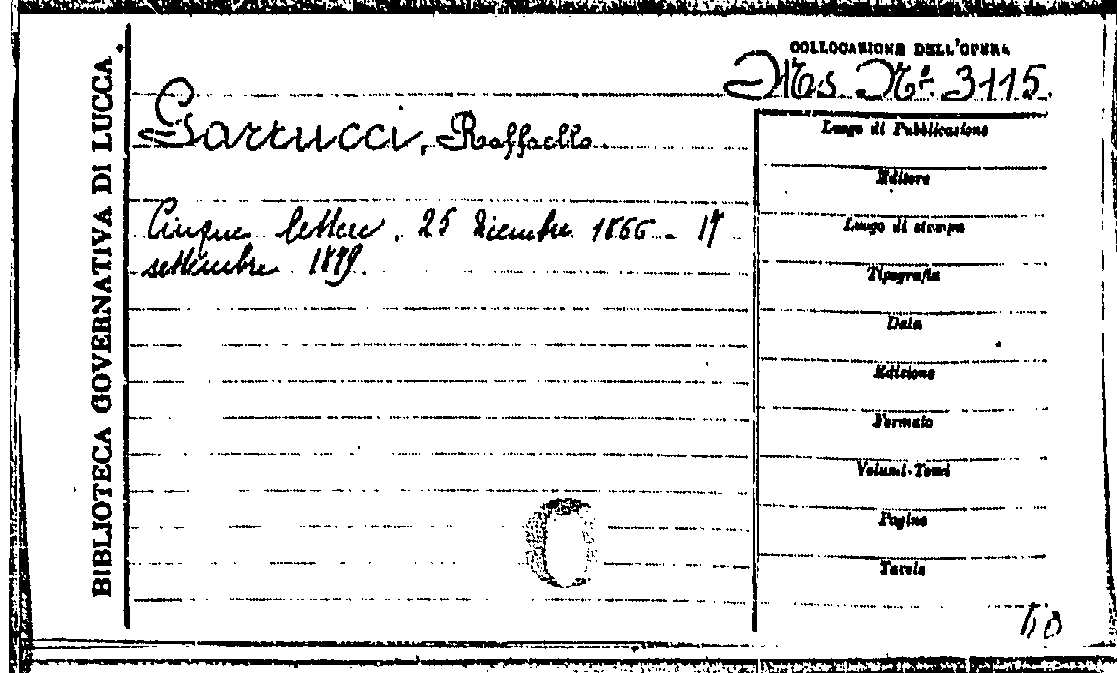 BIBLIOTECA GOVERNATIVA DI LUCCA
COLLOCAZIONE DELL'OPERA
Ms. Nº 3115.
Garrucci, Raffaello.
Cinque lettere. 25 Dicembre 1866 - 17
settembre 1879.
Luogo di Pubblicazione
Editore
Luogo di stampa
Tipografia
Data
Edizione
Formato
Volumi-Tomi
Pagine
Tavole